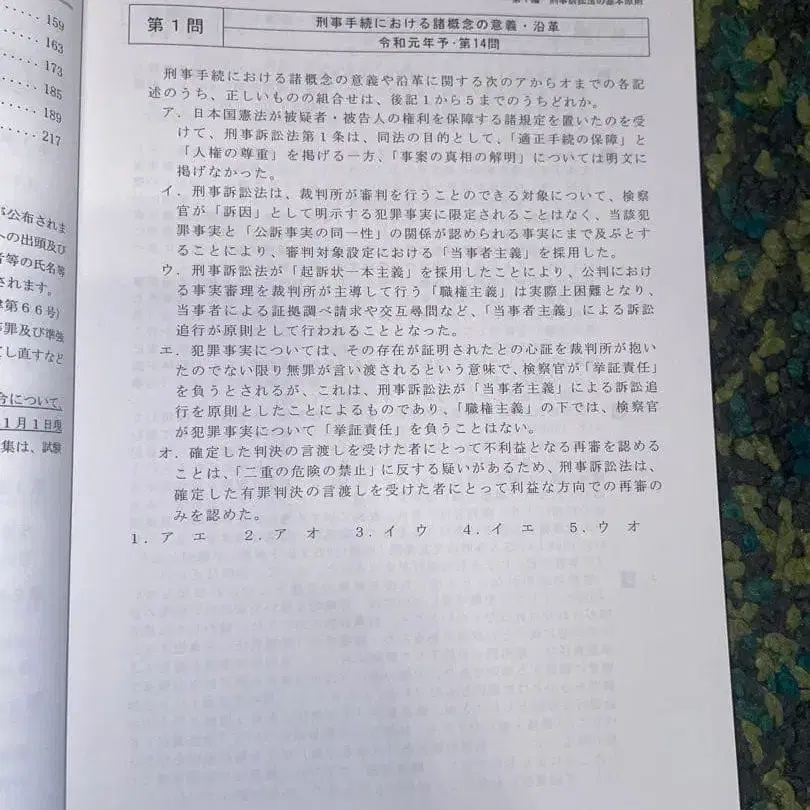 159
163
173
185
189
217
が公布されま
への出頭及び
者等の氏名等
されます。
律第66号)
等罪及び準強
てし直すなど
令について,
1月1日現
集は、試験
刑事訴訟法の基本原則
第1問
刑事手続における諸概念の意義・沿革
令和元年予・第14問
刑事手続における諸概念の意義や沿革に関する次のアからオまでの各記
述のうち、正しいものの組合せは、後記1から5までのうちどれか。
ア.日本国憲法が被疑者・被告人の権利を保障する諸規定を置いたのを受
けて、刑事訴訟法第1条は、同法の目的として、「適正手続の保障」と
「人権の尊重」を掲げる一方、「事案の真相の解明」については明文に
掲げなかった。
イ.刑事訴訟法は、裁判所が審判を行うことのできる対象について、検察
官が「訴因」として明示する犯罪事実に限定されることはなく、当該犯
罪事実と「公訴事実の同一性」の関係が認められる事実にまで及ぶとす
ることにより、審判対象設定における「当事者主義」を採用した。
ウ.刑事訴訟法が「起訴状一本主義」を採用したことにより、公判におけ
る事実審理を裁判所が主導して行う「職権主義」は実際上困難となり、
当事者による証拠調べ請求や交互尋問など、「当事者主義」による訴訟
追行が原則として行われることとなった。
エ.犯罪事実については、その存在が証明されたとの心証を裁判所が抱い
たのでない限り無罪が言い渡されるという意味で、検察官が「挙証責任」
を負うとされるが、これは、刑事訴訟法が「当事者主義」による訴訟追
行を原則としたことによるものであり、「職権主義」の下では、検察官
が犯罪事実について「挙証責任」を負うことはない。
オ.確定した判決の言渡しを受けた者にとって不利益となる再審を認める
ことは、「二重の危険の禁止」に反する疑いがあるため、刑事訴訟法は、
確定した有罪判決の言渡しを受けた者にとって利益な方向での再審の
みを認めた。
1.ア エ 2.ア オ 3.イ ウ 4.イ エ 5.ウ オ